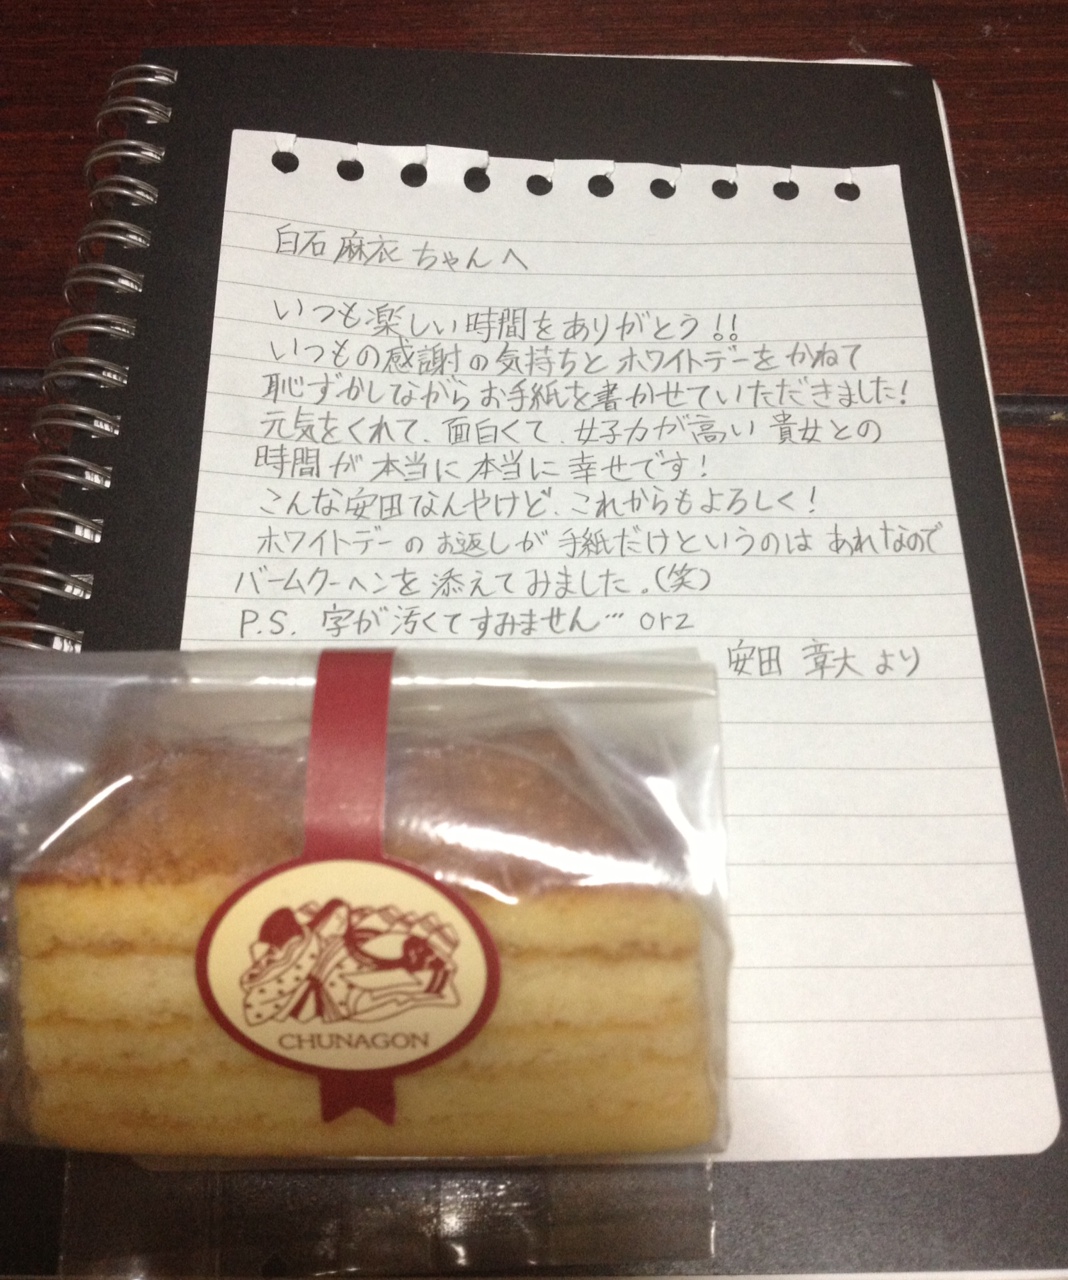 白石麻衣ちゃんへ
いつも楽しい時間をありがとう!!
いつもの感謝の気持ちとホワイトデーをかねて
恥ずかしながらお手紙を書かせていただきました!
元気をくれて、面白くて、女子力が高い貴女との
時間が本当に本当に幸せです!
こんな安田なんやけど、これからもよろしく!
ホワイトデーのお返しが手紙だけというのはあれなので
バームクーヘンを添えてみました。(笑)
P.S. 字が汚くてすみません… orz
安田 章大 より
CHUNAGON